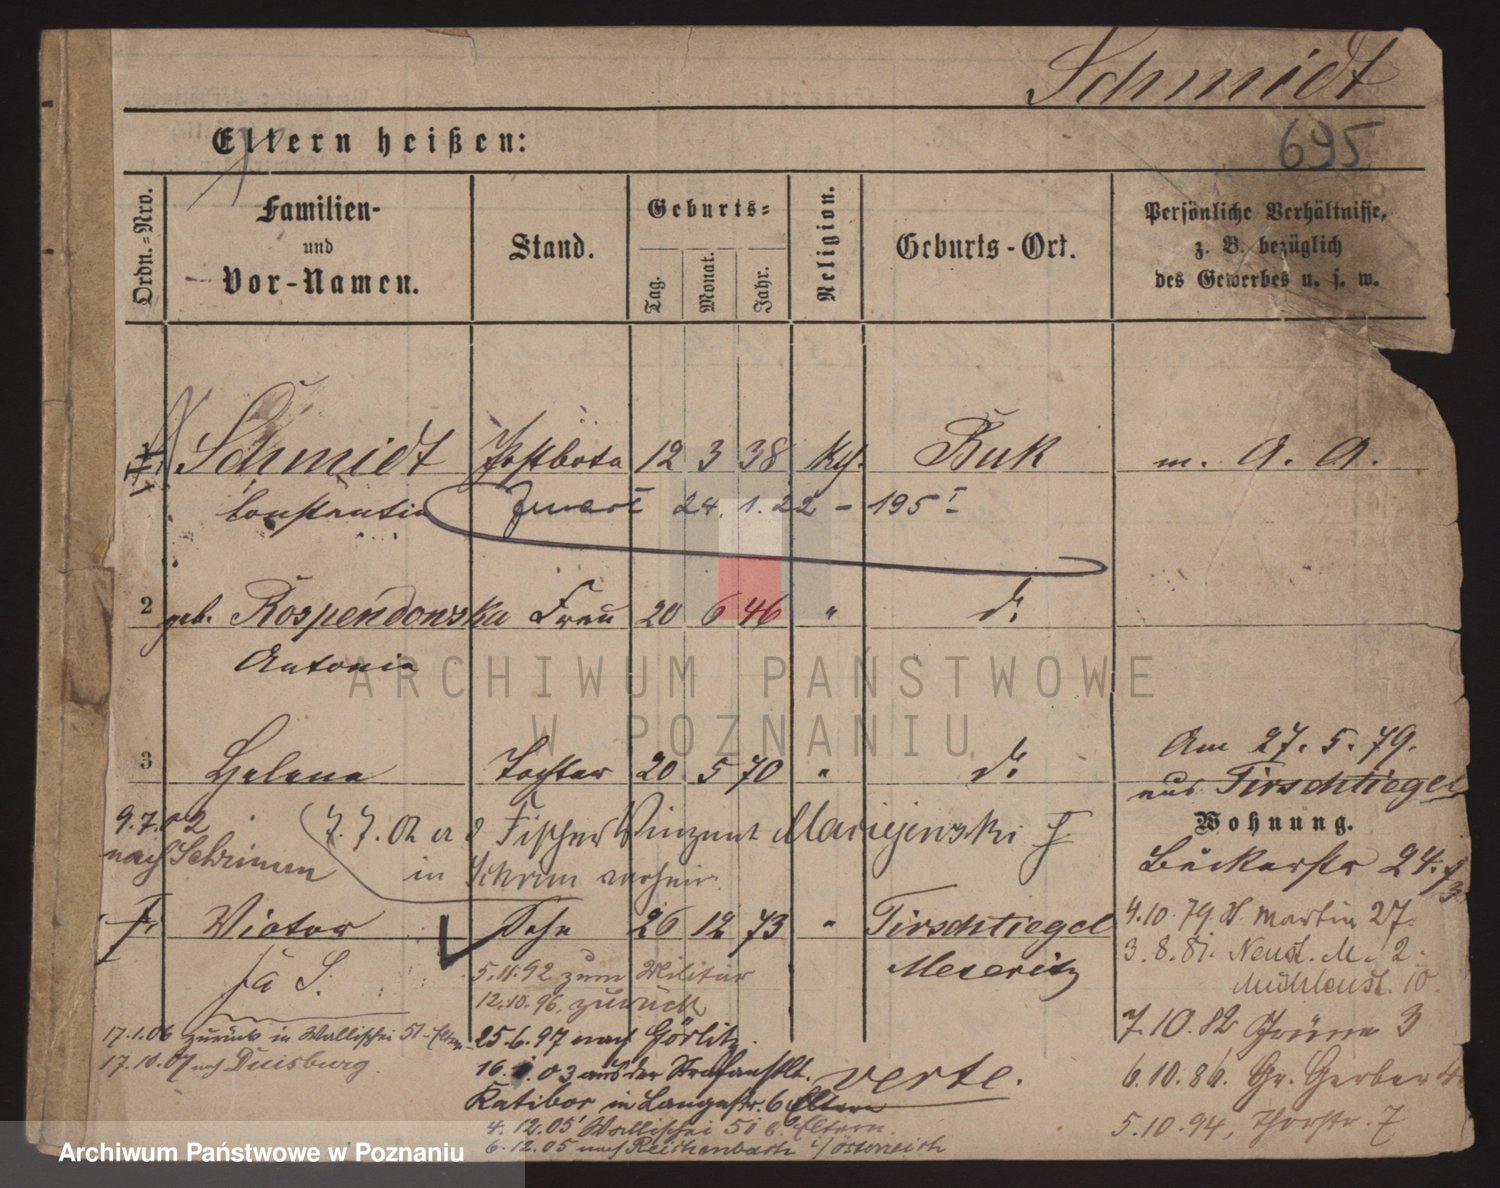 Schmidt
Eltern heißen:
695
Ordn.=Nro.
Familien-
und
Vor-Namen.
Stand.
Geburts=
Tag.
Monat.
Jahr.
Religion.
Geburts-Ort.
Persönliche Verhältnisse,
z. B. bezüglich
des Gewerbes u. s. w.
1 Schmidt Postbote 12 3 38 Buk m. A. A.
Constantin 24. 1. 22 - 195 I
2 geb. Rospendowska Frau 20 6 46 " d.
Antonia
3 Helena Tochter 20 5 70 " d.
Am 27. 5. 79.
aus Tirschtiegel
Wohnung.
Bäckerstr 24.
9.7.02
nach Schrimm
7.7.02 Fischer Vinzent
in Schrim
Victor Sohn 26 12 73 " Tirschtiegel
Meseritz
5.11.92 zum Militär
12.10.96 zurück
25.6.97 nach Görlitz.
03 aus der Strafanstlt.
Ratibor in Langestr. 6 Eltern
4.12.05 Wallischei Eltern.
6.12.05 nach Reichenbach i/österreich
17.1.06 zurück in Wallischei
17.10.07 nach Duisburg.
verte.
4.10.79 Martin 27.
3.8.81. Neust. M. 2.
Mühlenst. 10.
7.10.82 Grüne 3
6.10.86. Gr. Gerber
5.10.94, Thorstr. 7
ARCHIWUM PAŃSTWOWE
W POZNANIU
Archiwum Państwowe w Poznaniu